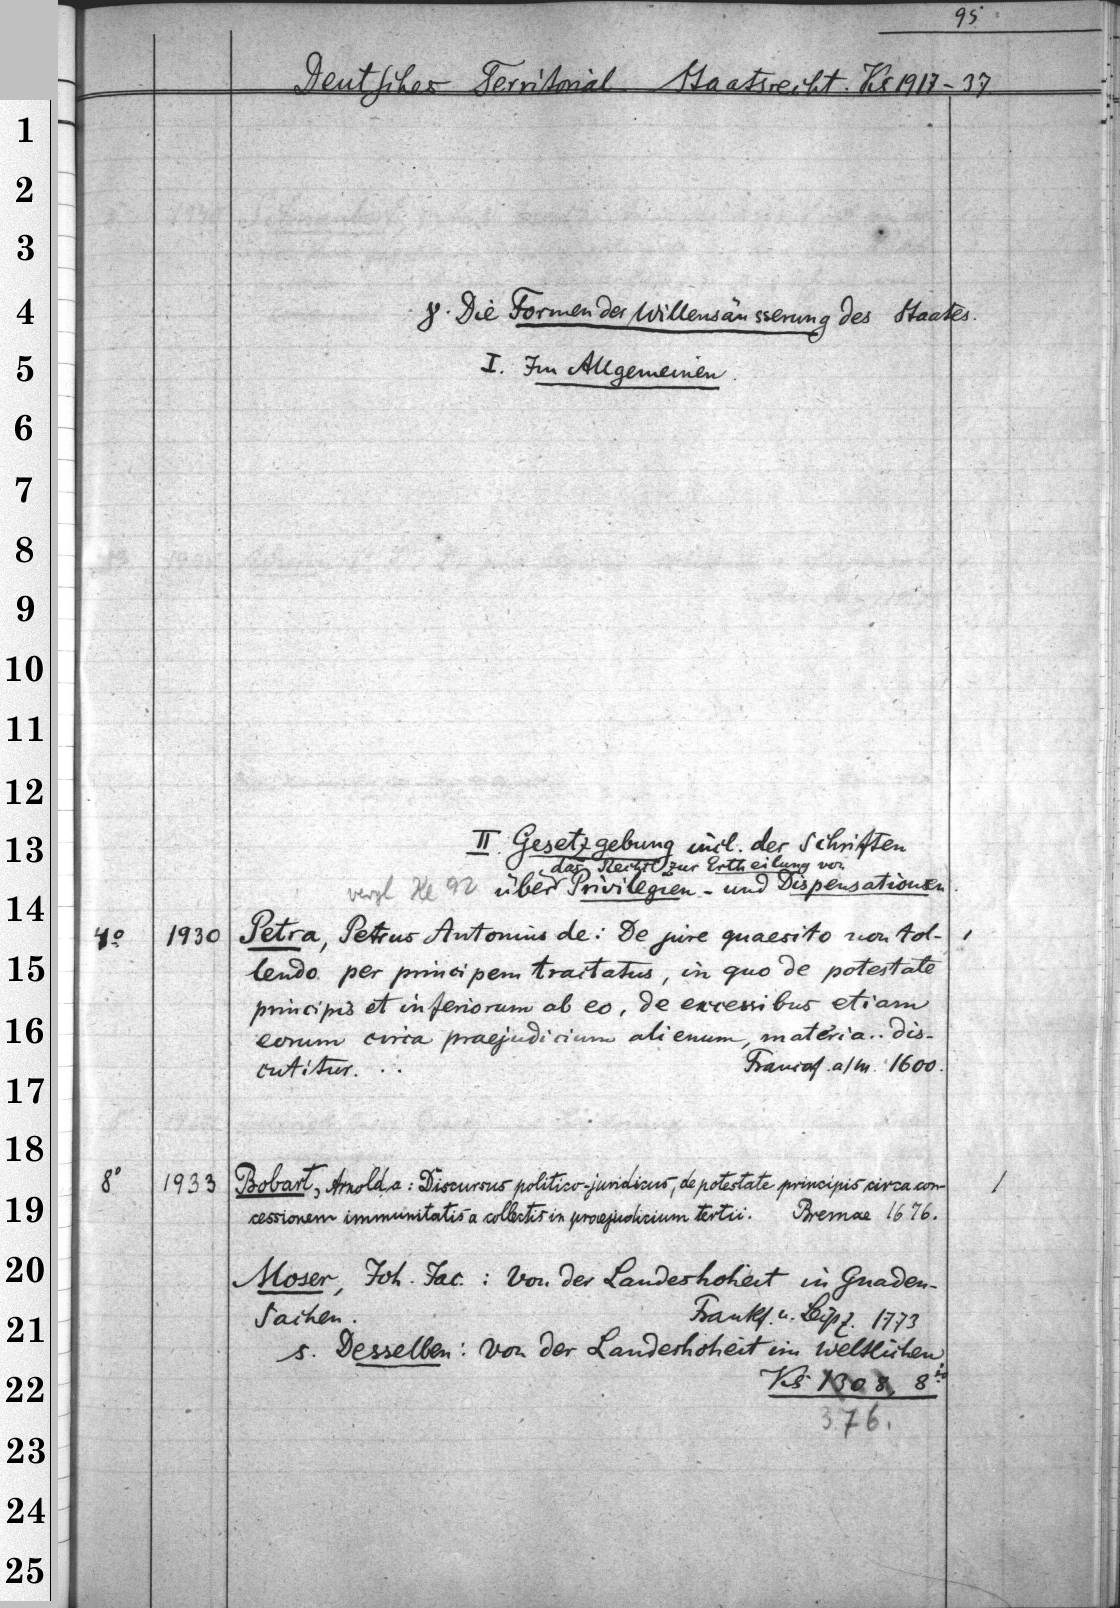 95
Deutsches Territorial Staatsrecht. Ks 1917-37
1
2
3
4
γ. Die Formen der Willensäusserung des Staates.
5
I. Im Allgemeinen.
6
7
8
9
10
11
12
13
II. Gesetzgebung incl. der Schriften
das Recht zur Ertheilung von
14
vergl Ke 92 über Privilegien- und Dispensationen.
4o 1930 Petra, Petrus Antonius de: De jure quaesito non tol- 1
15
lendo per principem tractatus, in quo de potestate
principis et inferiorum ab eo, de excessibus etiam
16
eorum circa praejudicium alienum, materia.. dis-
cutitur. . . Francof. a/m. 1600.
17
18
8o 1933 Bobart, Arnold a: Discursus politico-juridicus, de potestate principis circa con- 1
19
cessionem immunitatis a collectis in praejudicium tertii. Bremae 1676.
20
Moser, Joh. Jac. : Von der Landeshoheit in Gnaden-
21
Sachen. Frankf. u. Leipz. 1773
s. Desselben: Von der Landeshoheit im weltlichen
22
Ks 1308, 8
376.
23
24
25